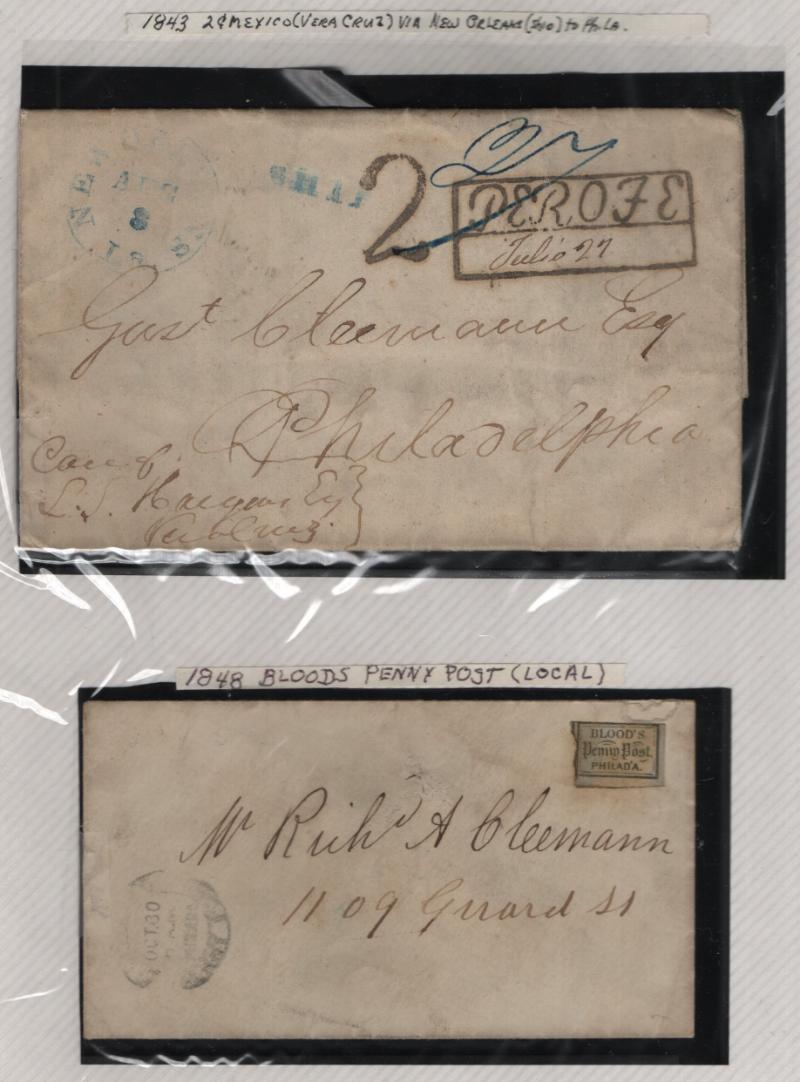 1843 2¢ MEXICO (VERA CRUZ) VIA NEW ORLEANS (SHIP) to PHILA.
AUG
8
SHIP
2
27
PEROTE
Julio 27
Gust Cleemann Esq
Philadelphia
Care of
L. S. Hargous Esq
Vera Cruz
1848 BLOODS PENNY POST (LOCAL)
BLOOD'S
Penny Post.
PHILAD'A.
Mr Richd A Cleemann
1109 Girard St
OCT.30